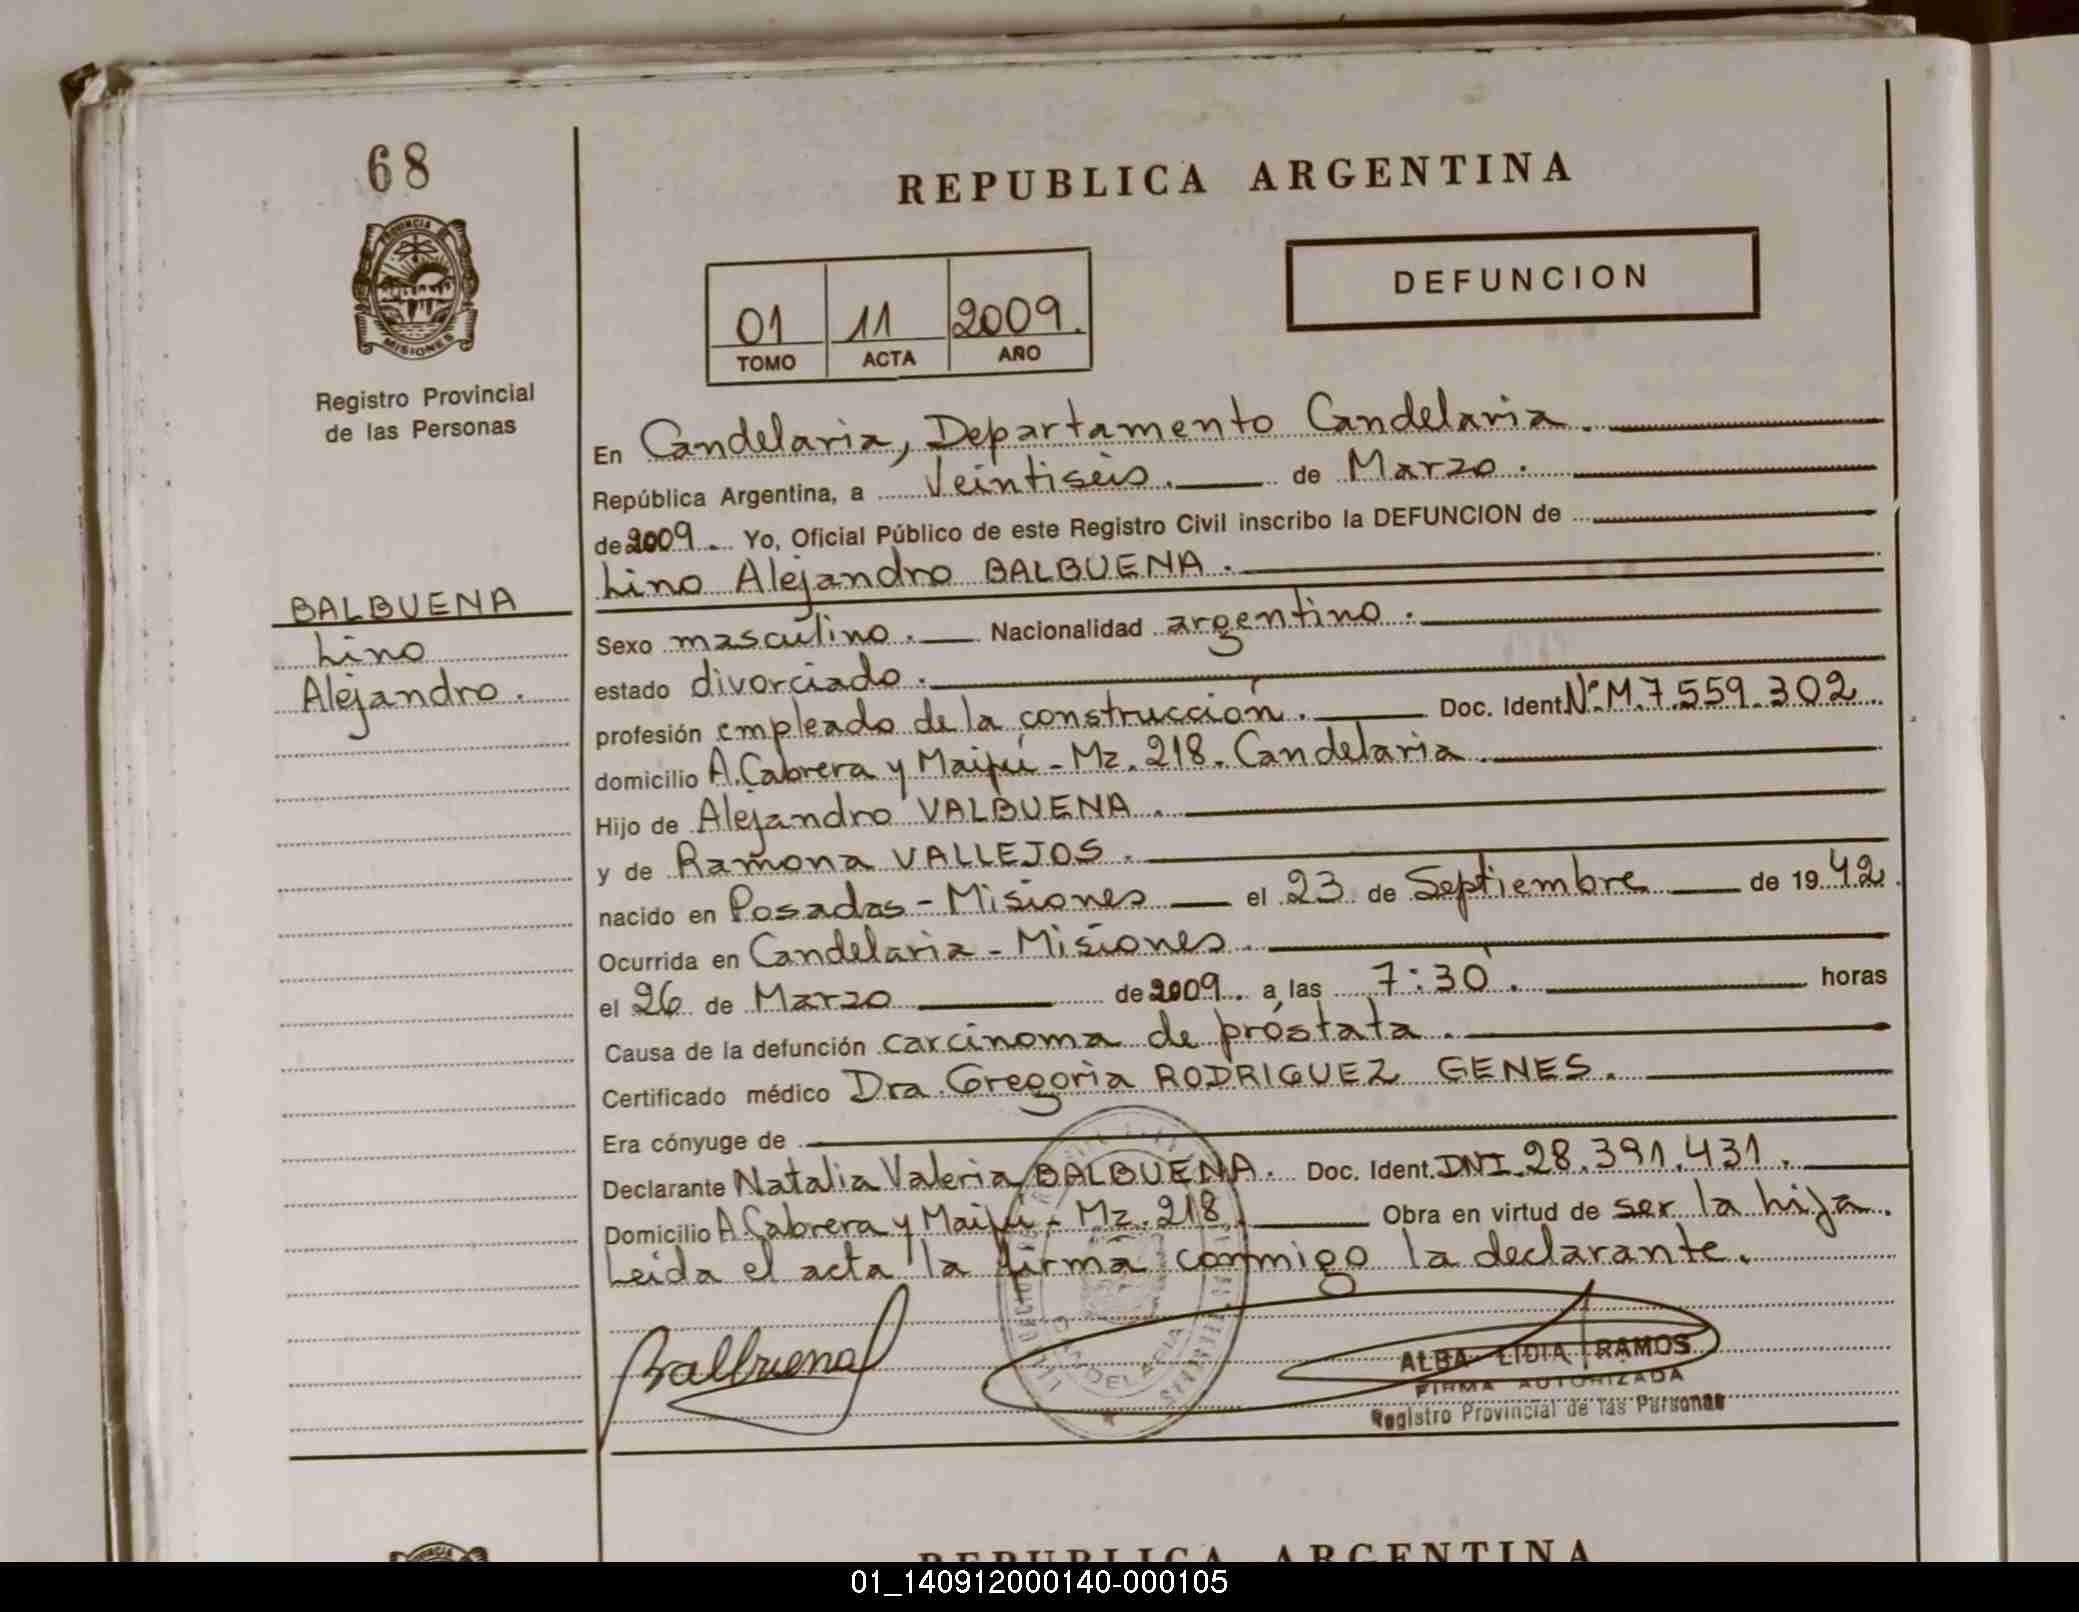 68
PROVINCIA
MISIONES
Registro Provincial
de las Personas
BALBUENA
Lino
Alejandro.
REPUBLICA ARGENTINA
01 11 2009.
TOMO ACTA AÑO
DEFUNCION
En Candelaria, Departamento Candelaria.
República Argentina, a Veintiseis. de Marzo.
de 2009. Yo, Oficial Público de este Registro Civil inscribo la DEFUNCION de
Lino Alejandro BALBUENA.
Sexo masculino. Nacionalidad argentino.
estado divorciado.
profesión empleado de la construcción. Doc. Ident. Nº M.7.559.302.
domicilio A. Cabrera y Maipú - Mz. 218. Candelaria.
Hijo de Alejandro VALBUENA.
y de Ramona VALLEJOS.
nacido en Posadas - Misiones el 23 de Septiembre de 1942.
Ocurrida en Candelaria - Misiones.
el 26 de Marzo de 2009. a las 7:30'. horas
Causa de la defunción carcinoma de próstata.
Certificado médico Dra. Gregoria RODRIGUEZ GENES.
Era cónyuge de
Declarante Natalia Valeria BALBUENA. Doc. Ident. DNI. 28.391.431.
Domicilio A. Cabrera y Maipú - Mz. 218. Obra en virtud de ser la hija.
Leída el acta la firma conmigo la declarante.
Balbuena
CANDELARIA
ALBA LIDIA RAMOS
FIRMA AUTORIZADA
Registro Provincial de las Personas
REPUBLICA ARGENTINA
01_140912000140-000105